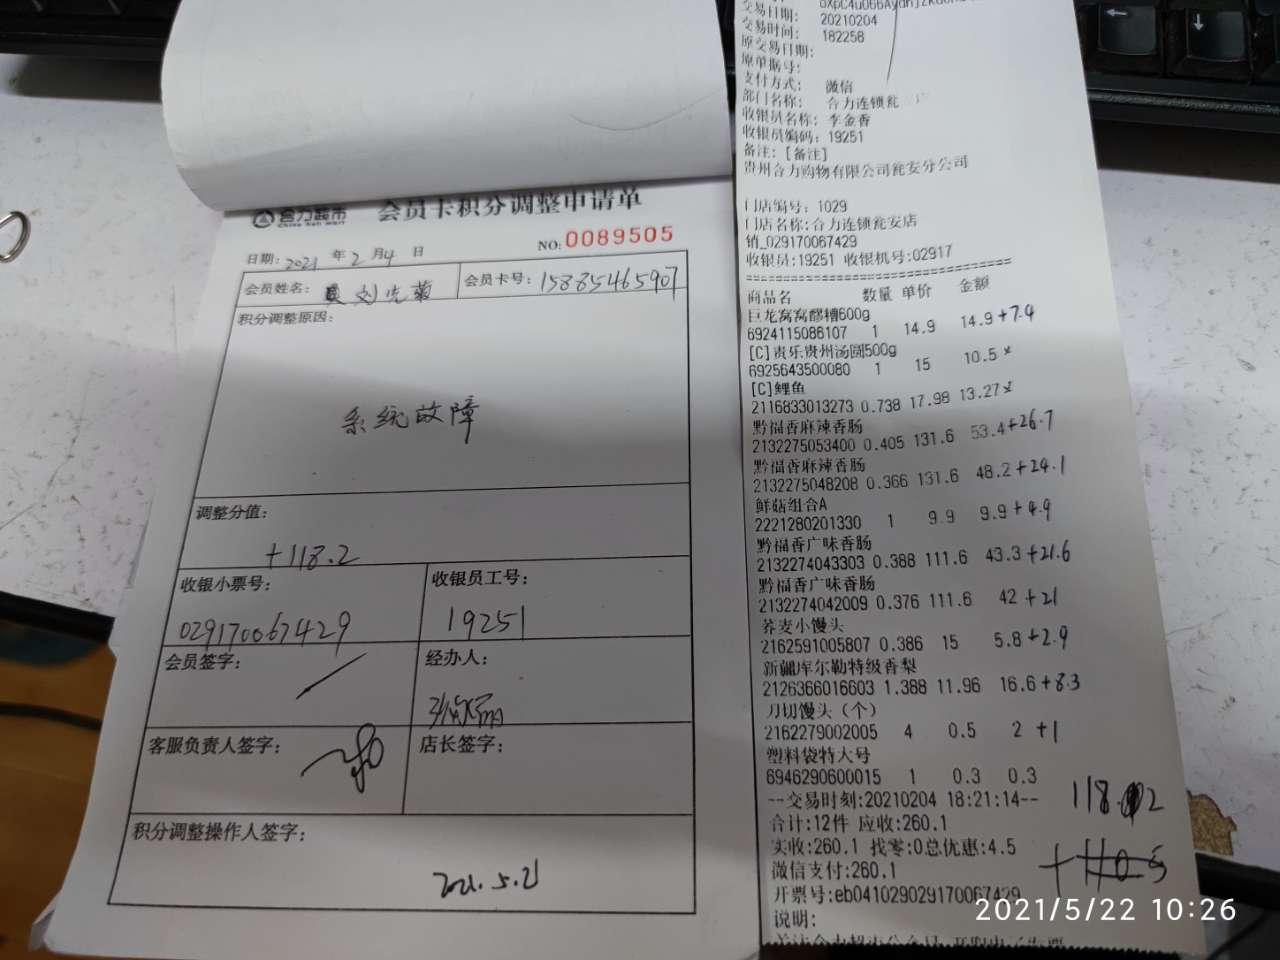 合力超市 会员卡积分调整申请单
China Heli Mart
日期: 2021 年 2 月 4 日 NO: 0089505
会员姓名: 会员卡号: 15885465907
积分调整原因:
系统故障
调整分值:
+118.2
收银小票号: 收银员工号:
029170067429 19251
会员签字: 经办人:
客服负责人签字: 店长签字:
积分调整操作人签字:
2021.5.21
交易日期: 20210204
交易时间: 182258
原交易日期:
原单据号:
支付方式: 微信
部门名称: 合力连锁瓮
收银员名称: 李金香
收银员编码: 19251
备注: [备注]
贵州合力购物有限公司瓮安分公司
门店编号: 1029
门店名称: 合力连锁瓮安店
销_029170067429
收银员:19251 收银机号:02917
商品名 数量 单价 金额
巨龙窝窝醪糟600g
6924115086107 1 14.9 14.9+7.4
[C]贵乐贵州汤圆500g
6925643500080 1 15 10.5 ×
[C]鲤鱼
2116833013273 0.738 17.98 13.27×
黔福香麻辣香肠
2132275053400 0.405 131.6 53.4+26.7
黔福香麻辣香肠
2132275048208 0.366 131.6 48.2+24.1
鲜菇组合A
2221280201330 1 9.9 9.9+4.9
黔福香广味香肠
2132274043303 0.388 111.6 43.3+21.6
黔福香广味香肠
2132274042009 0.376 111.6 42 +21
荞麦小馒头
2162591005807 0.386 15 5.8+2.9
新疆库尔勒特级香梨
2126366016603 1.388 11.96 16.6+8.3
刀切馒头(个)
2162279002005 4 0.5 2 +1
塑料袋特大号
6946290600015 1 0.3 0.3
--交易时刻:20210204 18:21:14--
118.2
合计:12件 应收:260.1
实收:260.1 找零:0总优惠:4.5
微信支付:260.1
开票号:eb041029029170067429
说明:
2021/5/22 10:26